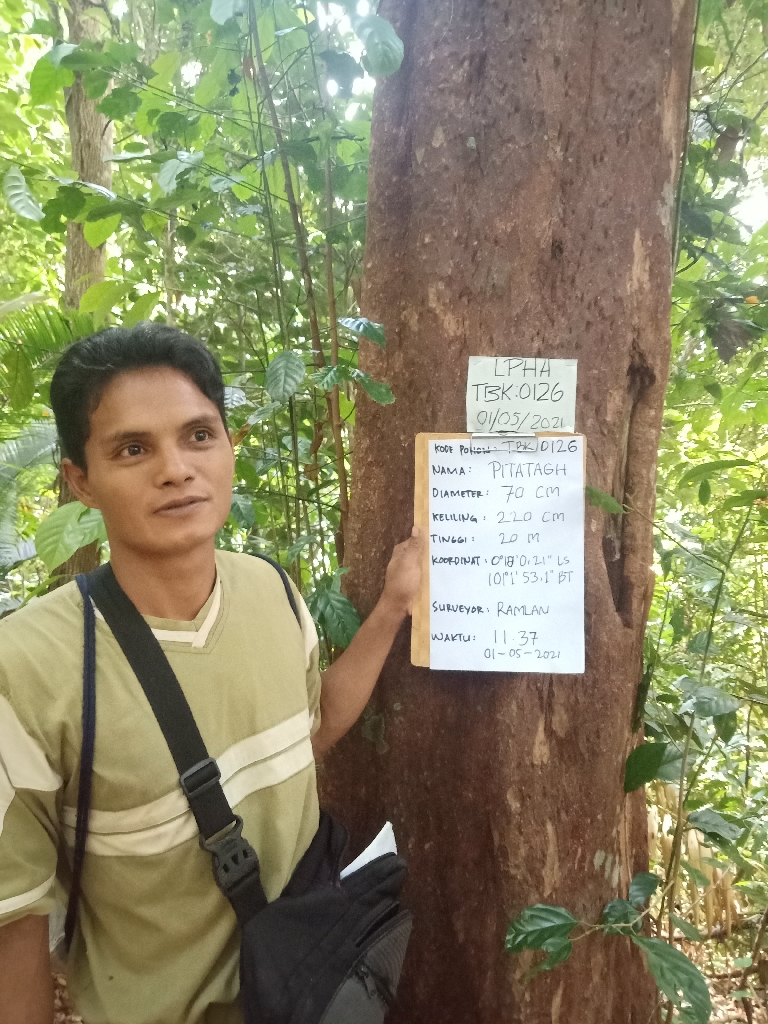 LPHA
TBK:0126
01/05/2021
KODE POHON: TBK/0126
NAMA: PITATAGH
DIAMETER: 70 CM
KELILING: 220 CM
TINGGI: 20 M
KOORDINAT: 0°18'0,21" LS
101°1'53,1" BT
SURVEYOR: RAMLAN
WAKTU: 11.37
01-05-2021